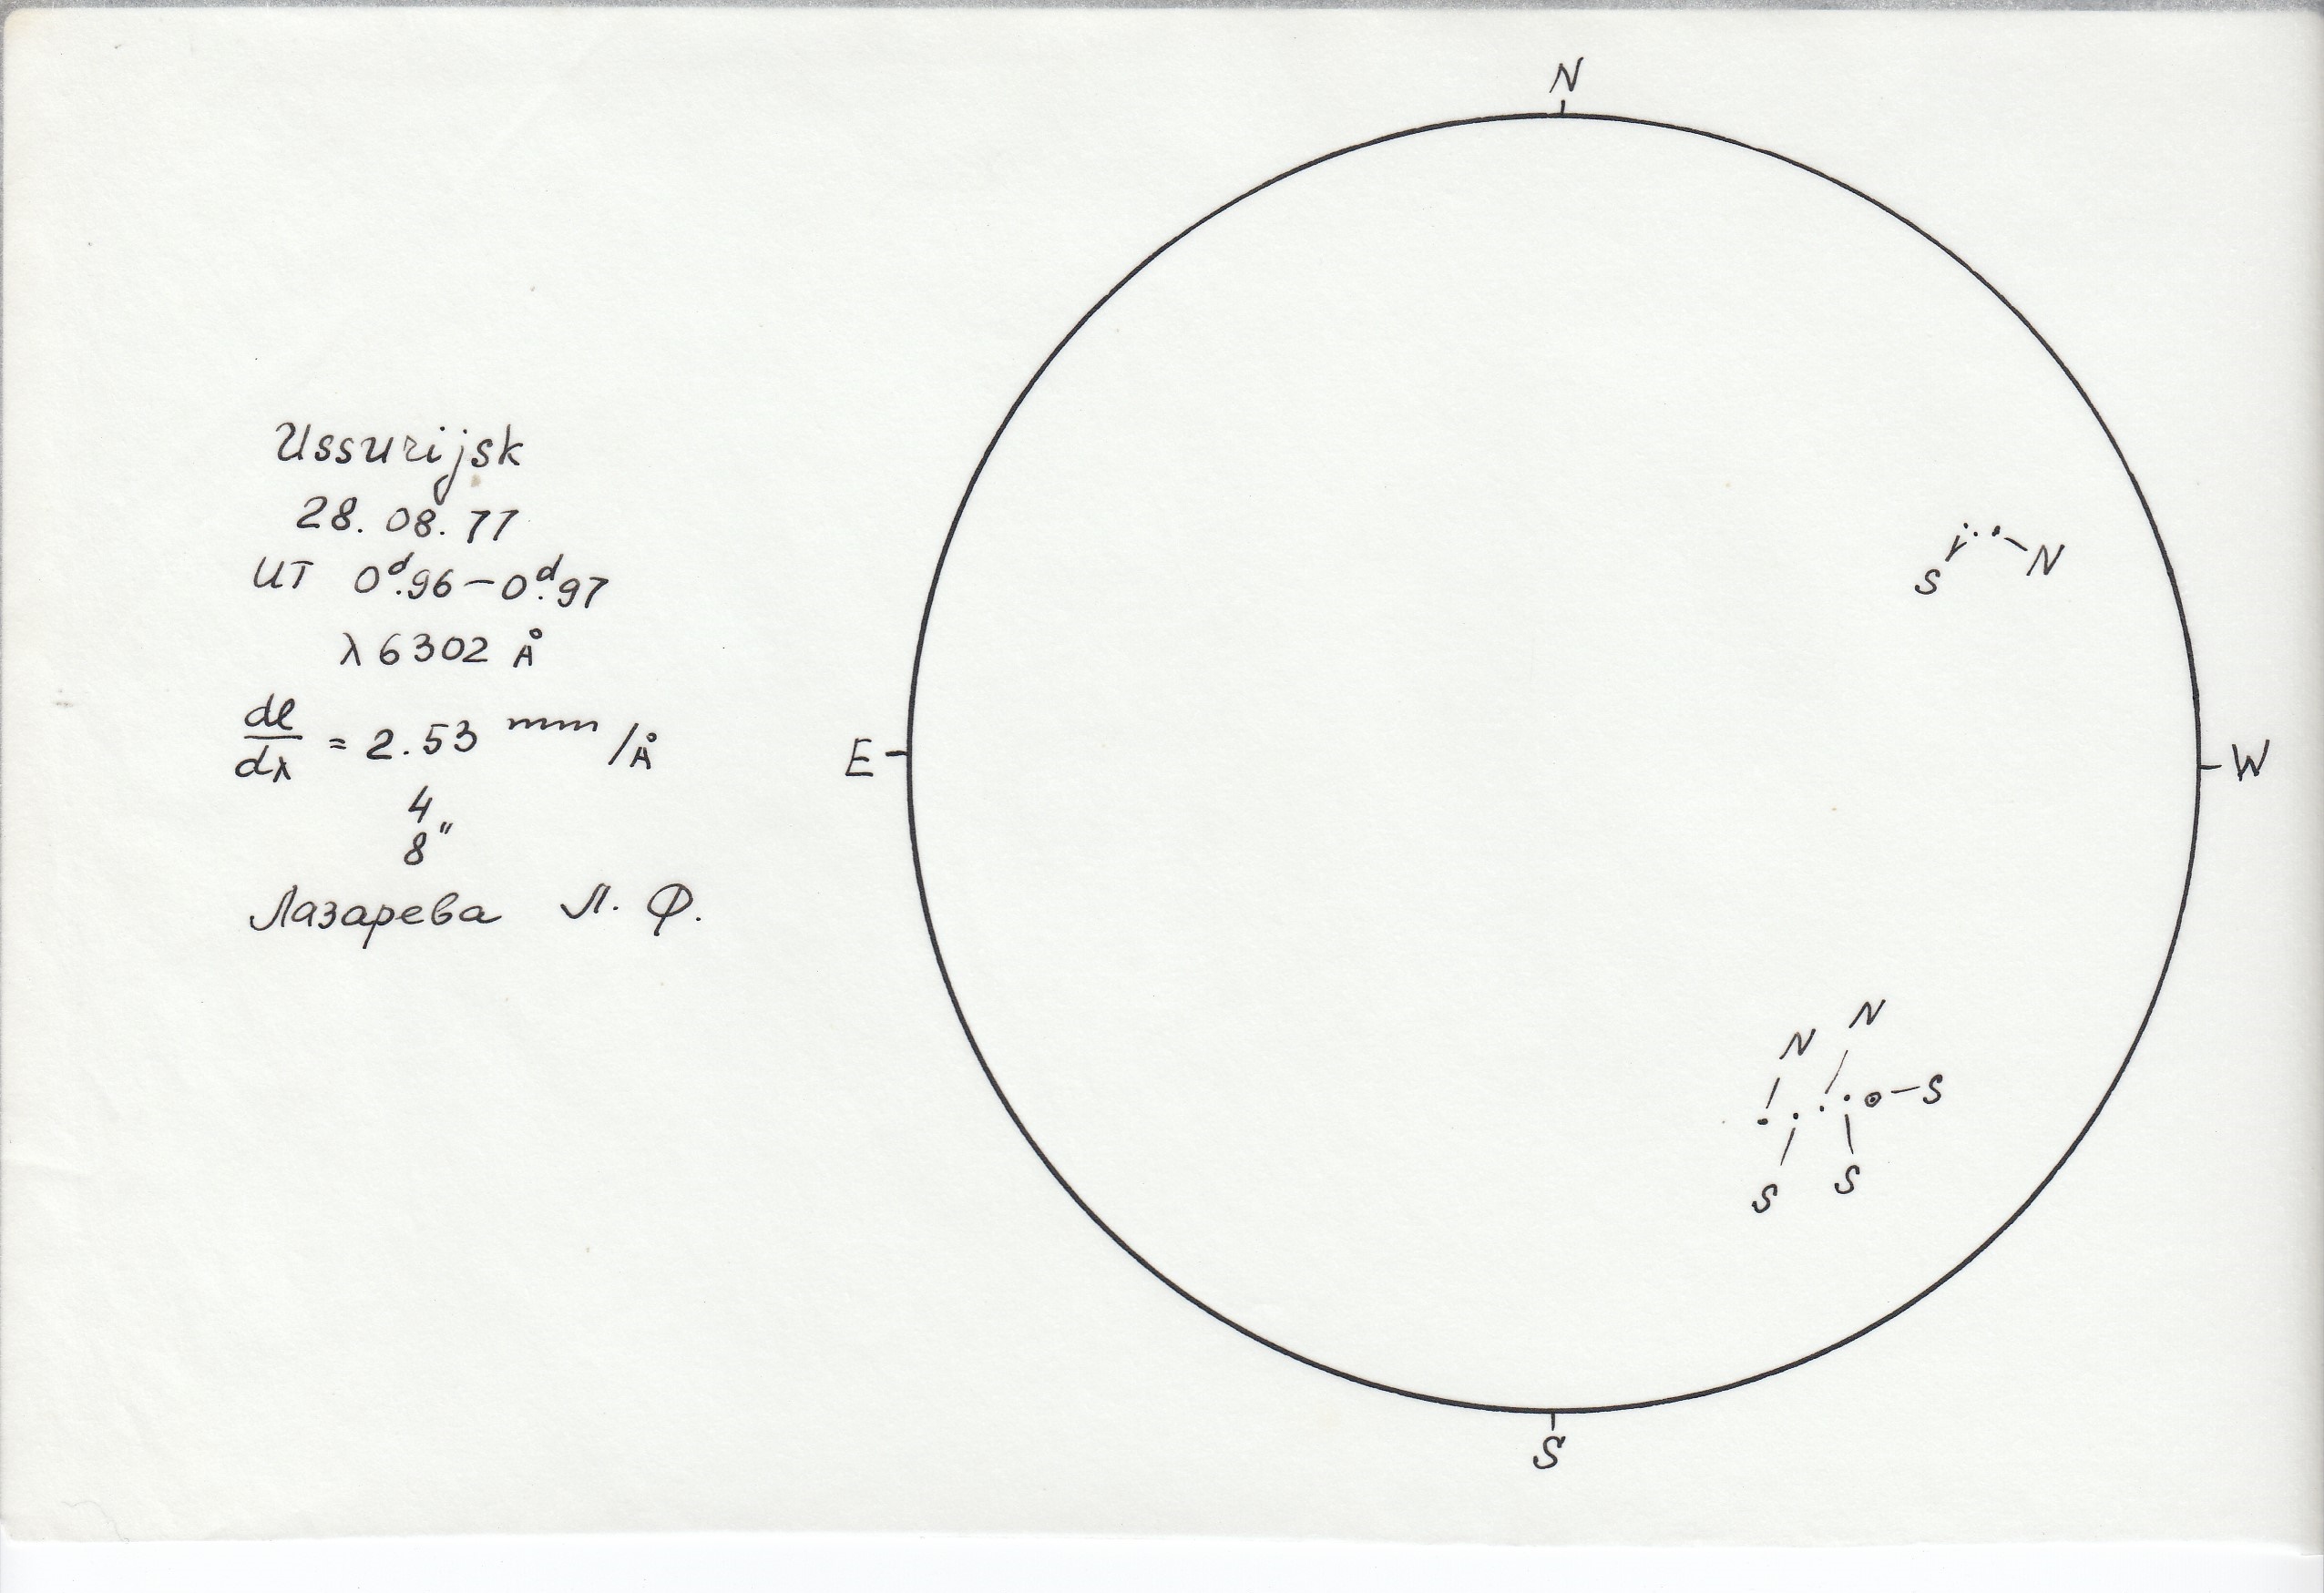 Ussurijsk
28. 08. 77
UT 0ᵈ.96 – 0ᵈ.97
λ 6302 Å
dl/dλ = 2.53 mm/Å
4
8"
Лазарева Л. Ф.
N
S N
E W
N
N
S
S
S
S